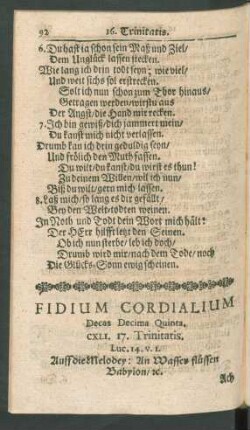 92 16. Trinitatis.
6. Du hast ja schon sein Maß und Ziel/
Dem Unglück lassen stecken.
Wie lang ich drin todt seyn; wie viel/
Und weit sichs sol erstrecken.
Solt ich nun schon zum Thor hinaus/
Getragen werden/ wirstu aus
Der Angst/ die Hand mir recken.
7. Ich bin gewiß/ dich jammert mein/
Du kanst mich nicht verlassen.
Drumb kan ich drein gedultig seyn/
Und frölich den Muth fassen.
Du wilt/ du kanst/ du wirst es thun!
Zu deinem Willen/ wil ich nun/
Biß du wilt/ gern mich lassen.
8. Laß mich/ so lang es dir gefällt/
Bey den Weit-todten weinen.
In Noth und Todt dein Wort mich hält:
Der HErr hilfft letz den Seinen.
Ob ich nun sterbe/ leb ich doch/
Drumb wird mir/ nach dem Tode/ noch
Die Glücks-Sonn ewig scheinen.
FIDIUM CORDIALIUM
Decas Decima Quinta.
CXLI. 17. Trinitatis.
Luc. 14. v. 1.
Auff die Melodey: An Wasser flüssen
Babylon/ ꝛc.
Ach